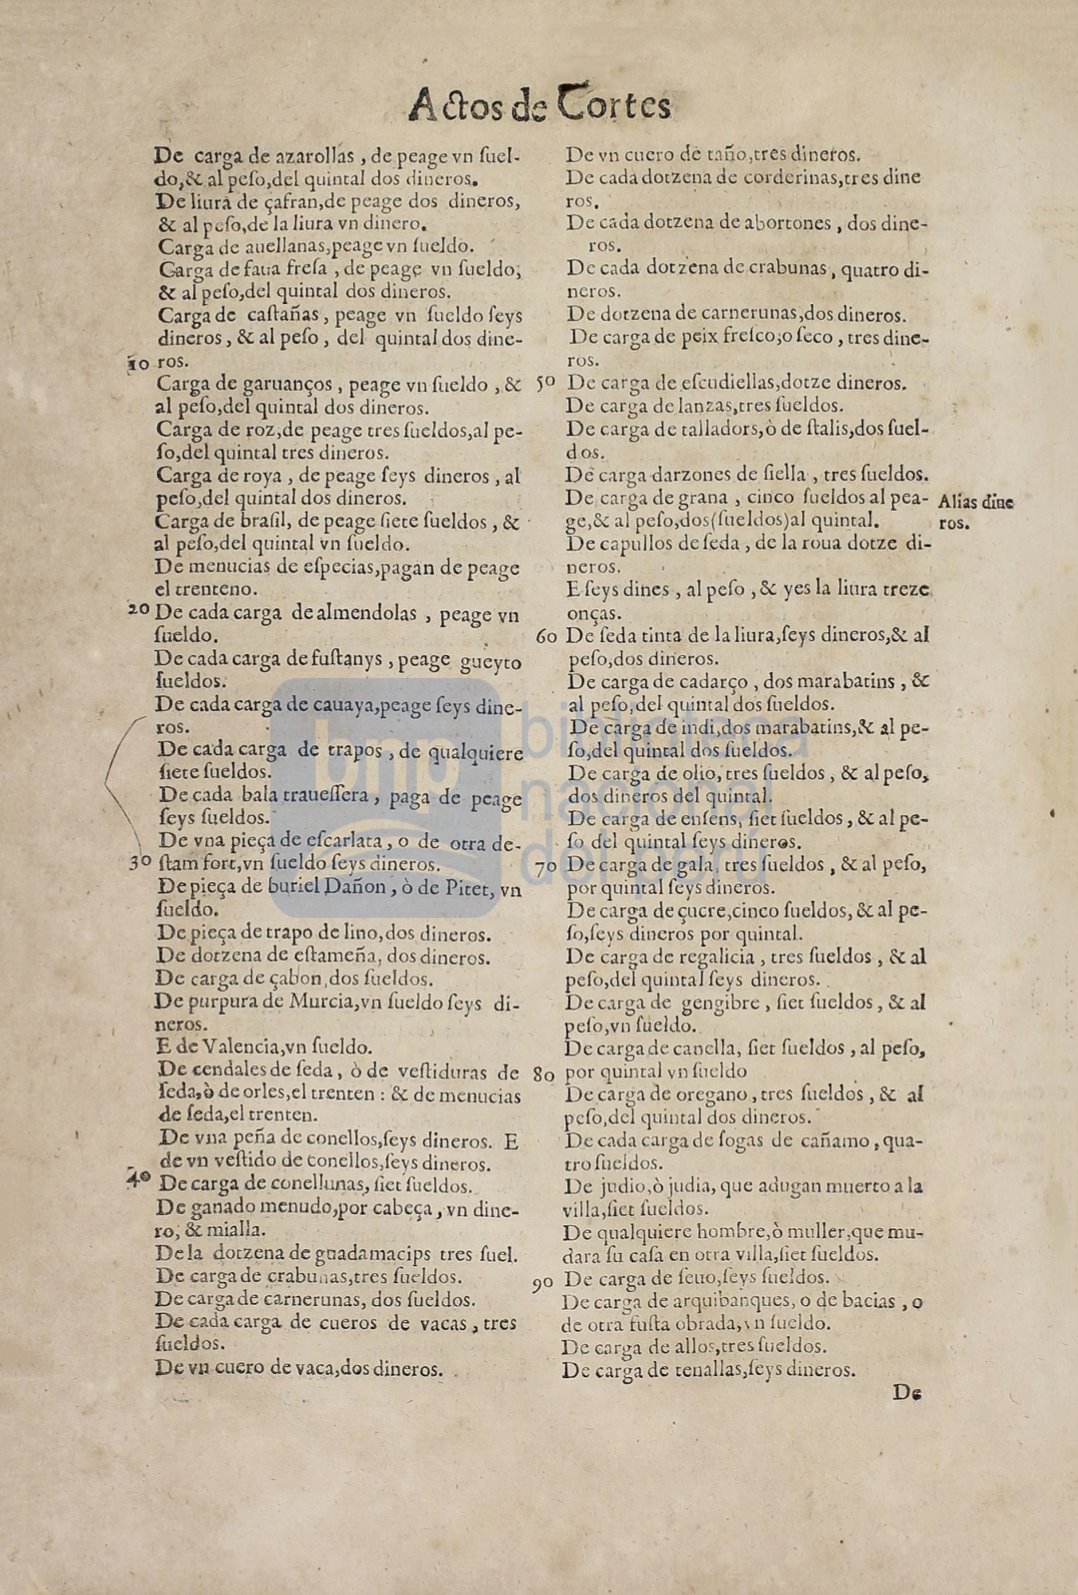 Actos de Cortes
De carga de azarollas , de peage vn ſuel-
do,& al peſo,del quintal dos dineros.
De liura de çafran,de peage dos dineros,
& al peſo,de la liura vn dinero.
Carga de auellanas,peage vn ſueldo.
Carga de faua freſa , de peage vn ſueldo,
& al peſo,del quintal dos dineros.
Carga de caſtañas , peage vn ſueldo ſeys
dineros , & al peſo , del quintal dos dine-
10 ros.
Carga de garuanços , peage vn ſueldo , &
al peſo,del quintal dos dineros.
Carga de roz,de peage tres ſueldos,al pe-
ſo,del quintal tres dineros.
Carga de roya , de peage ſeys dineros , al
peſo,del quintal dos dineros.
Carga de braſil, de peage ſiete ſueldos , &
al peſo,del quintal vn ſueldo.
De menucias de eſpecias,pagan de peage
el trenteno.
20 De cada carga de almendolas , peage vn
ſueldo.
De cada carga de fuſtanys , peage gueyto
ſueldos.
De cada carga de cauaya,peage ſeys dine-
ros.
De cada carga de trapos , de qualquiere
ſiete ſueldos.
De cada bala traueſſera , paga de peage
ſeys ſueldos.
De vna pieça de eſcarlata , o de otra de-
30 ſtam fort,vn ſueldo ſeys dineros.
De pieça de buriel Dañon , ò de Pitet, vn
ſueldo.
De pieça de trapo de lino,dos dineros.
De dotzena de eſtameña, dos dineros.
De carga de çabon,dos ſueldos.
De purpura de Murcia,vn ſueldo ſeys di-
neros.
E de Valencia,vn ſueldo.
De cendales de ſeda , ò de veſtiduras de
ſeda,ò de orles,el trenten : & de menucias
de ſeda,el trenten.
De vna peña de conellos,ſeys dineros. E
de vn veſtido de conellos,ſeys dineros.
40 De carga de conellunas, ſiet ſueldos.
De ganado menudo,por cabeça , vn dine-
ro, & mialla.
De la dotzena de guadamacips tres ſuel.
De carga de crabunas,tres ſueldos.
De carga de carnerunas, dos ſueldos.
De cada carga de cueros de vacas , tres
ſueldos.
De vn cuero de vaca,dos dineros.
De vn cuero de taño,tres dineros.
De cada dotzena de corderinas,tres dine
ros.
De cada dotzena de abortones , dos dine-
ros.
De cada dotzena de crabunas , quatro di-
neros.
De dotzena de carnerunas,dos dineros.
De carga de peix freſco,o ſeco , tres dine-
ros.
50 De carga de eſcudiellas,dotze dineros.
De carga de lanzas,tres ſueldos.
De carga de talladors,ò de ſtalis,dos ſuel-
dos.
De carga darzones de ſiella , tres ſueldos.
De carga de grana , cinco ſueldos al pea-
ge,& al peſo,dos(ſueldos)al quintal.
Alias dine
ros.
De capullos de ſeda , de la roua dotze di-
neros.
E ſeys dines , al peſo , & yes la liura treze
onças.
60 De ſeda tinta de la liura,ſeys dineros,& al
peſo,dos dineros.
De carga de cadarço , dos marabatins , &
al peſo,del quintal dos ſueldos.
De carga de indi,dos marabatins,& al pe-
ſo,del quintal dos ſueldos.
De carga de olio, tres ſueldos , & al peſo,
dos dineros del quintal.
De carga de enſens, ſiet ſueldos , & al pe-
ſo del quintal ſeys dineros.
70 De carga de gala, tres ſueldos , & al peſo,
por quintal ſeys dineros.
De carga de çucre,cinco ſueldos, & al pe-
ſo,ſeys dineros por quintal.
De carga de regalicia , tres ſueldos , & al
peſo,del quintal ſeys dineros.
De carga de gengibre , ſiet ſueldos , & al
peſo,vn ſueldo.
De carga de canella, ſiet ſueldos , al peſo,
80 por quintal vn ſueldo
De carga de oregano , tres ſueldos , & al
peſo,del quintal dos dineros.
De cada carga de ſogas de cañamo , qua-
tro ſueldos.
De judio,ò judia, que adugan muerto a la
villa,ſiet ſueldos.
De qualquiere hombre,ò muller,que mu-
dara ſu caſa en otra villa,ſiet ſueldos.
90 De carga de ſeuo,ſeys ſueldos.
De carga de arquibanques, o de bacias , o
de otra fuſta obrada,vn ſueldo.
De carga de allos,tres ſueldos.
De carga de tenallas,ſeys dineros.
De
bnp biblioteca
nacional
del perú